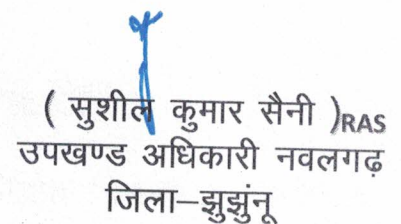 ( सुशील कुमार सैनी )RAS
उपखण्ड अधिकारी नवलगढ़
जिला–झुझुंनू